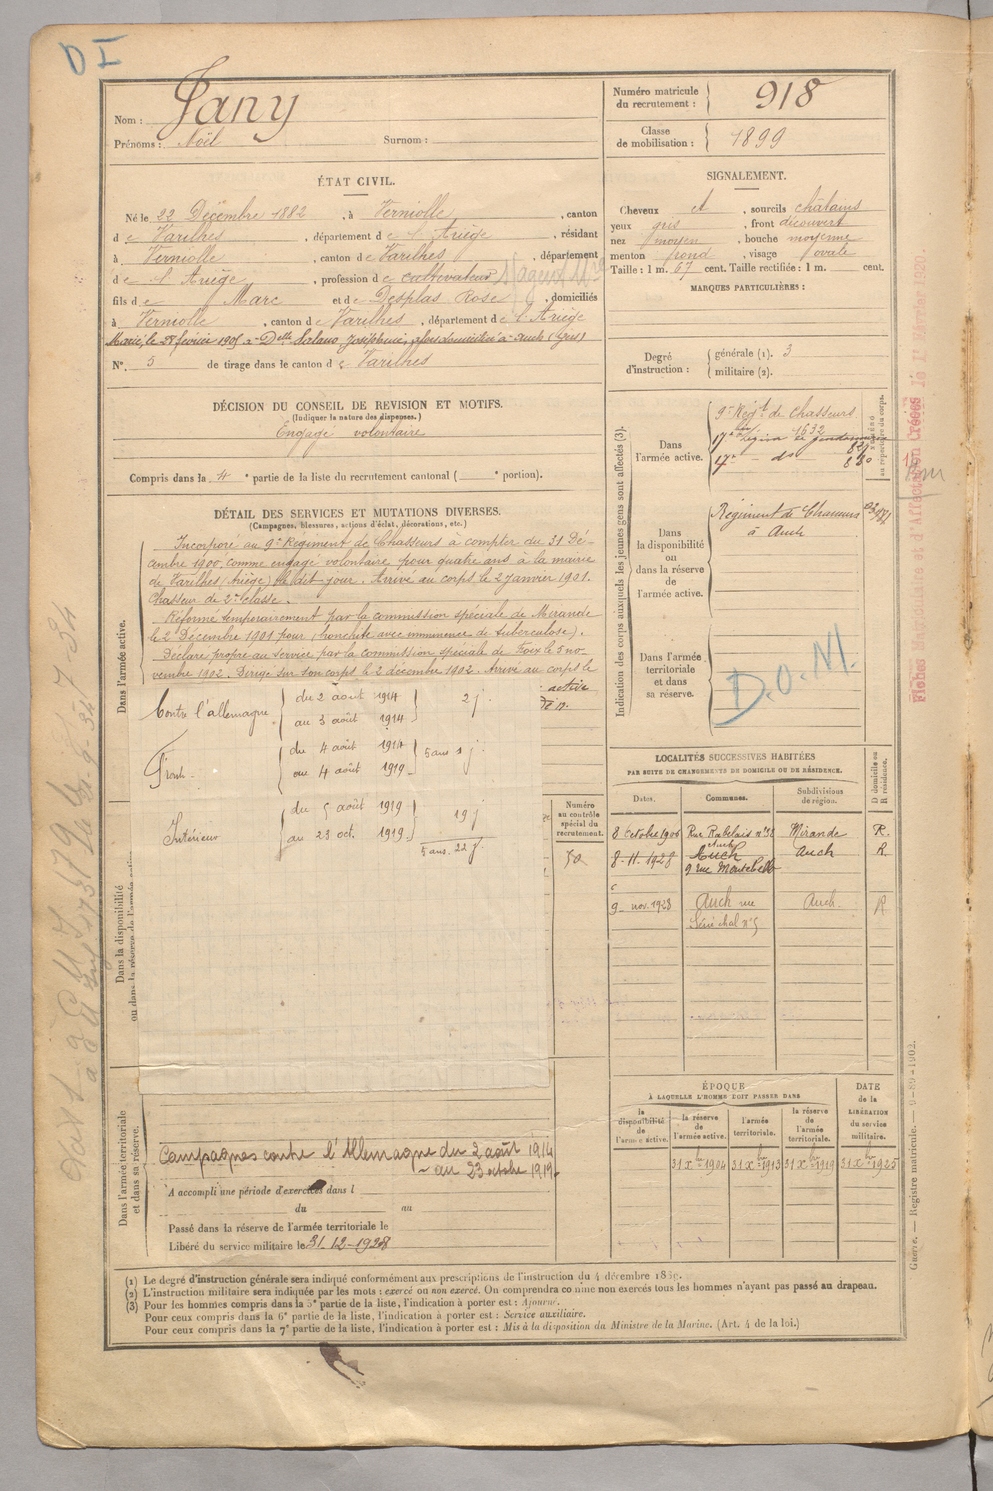 D I
Nom : Jany
Prénoms : Noël Surnom :
Numéro matricule du recrutement : 918
Classe de mobilisation : 1899
ÉTAT CIVIL.
Né le 22 Décembre 1882, à Verniolle, canton
de Varilhes, département de l'Ariège, résidant
à Verniolle, canton de Varilhes, département
de l'Ariège, profession de cultivateur
fils de Marc et de Desplas Rose, domiciliés
à Verniolle, canton de Varilhes, département de l'Ariège
Marié, le 28 février 1905 à Delle Joséphine, domiciliée à Auch (Gers)
N° 5 de tirage dans le canton de Varilhes
SIGNALEMENT.
Cheveux et, sourcils châtains
yeux gris, front découvert
nez moyen, bouche moyenne
menton rond, visage ovale
Taille : 1 m. 67 cent. Taille rectifiée : 1 m. cent.
MARQUES PARTICULIÈRES :
Degré d'instruction : générale (1). 3
militaire (2).
DÉCISION DU CONSEIL DE REVISION ET MOTIFS.
(Indiquer la nature des dispenses.)
Engagé volontaire
Compris dans la 4e partie de la liste du recrutement cantonal ( e portion).
DÉTAIL DES SERVICES ET MUTATIONS DIVERSES.
(Campagnes, blessures, actions d'éclat, décorations, etc.)
Dans l'armée active.
Incorporé au 9e Régiment de Chasseurs à compter du 31 Dé-
cembre 1900, comme engagé volontaire pour quatre ans à la mairie
de Varilhes (Ariège) le dit jour. Arrivé au corps le 2 janvier 1901.
Chasseur de 2e classe.
Réformé temporairement par la commission spéciale de Mirande
le 2 Décembre 1901 pour bronchite avec imminence de tuberculose).
Déclaré propre au service par la commission spéciale de Foix le 5 no-
vembre 1902. Dirigé sur son corps le 2 décembre 1902. Arrivé au corps le
active
Contre l'allemagne du 2 août 1914 au 3 août 1914 2 j.
Front. du 4 août 1914 au 4 août 1919 5 ans 1 j.
Intérieur du 5 août 1919 au 23 oct. 1919 19 j
5 ans. 22 j.
Dans la disponibilité
ou dans la réserve de l'armée active.
Numéro au contrôle spécial du recrutement.
50
Indication des corps auxquels les jeunes gens sont affectés (3).
Dans l'armée active.
9e Régt de Chasseurs
1632
17e Légion de gendarmerie
17e - do
NUMÉRO au répertoire du corps.
Dans la disponibilité ou dans la réserve de l'armée active.
Régiment de Chasseurs
à Auch
Dans l'armée territoriale et dans sa réserve.
D.O.M.
LOCALITÉS SUCCESSIVES HABITÉES
PAR SUITE DE CHANGEMENTS DE DOMICILE OU DE RÉSIDENCE.
Dates. Communes. Subdivisions de région. D domicile ou R résidence.
8 Octobre 1906 Rue Rabelais n° 58 Auch Mirande R.
8-11-1928 Auch 9 rue Montebello Auch R
9 nov. 1928 Auch rue Sénéchal n° 5 Auch. R
ÉPOQUE
À LAQUELLE L'HOMME DOIT PASSER DANS
la disponibilité de l'armée active. la réserve de l'armée active. l'armée territoriale. la réserve de l'armée territoriale.
DATE de la LIBÉRATION du service militaire.
31 Xbre 1904 31 Xbre 1913 31 Xbre 1919 31 Xbre 1925
Dans l'armée territoriale
et dans sa réserve.
Campagnes contre l'Allemagne du 2 août 1914
au 23 octobre 1919.
A accompli une période d'exercices dans l
du au
Passé dans la réserve de l'armée territoriale le
Libéré du service militaire le 31-12-1928
(1) Le degré d'instruction générale sera indiqué conformément aux prescriptions de l'instruction du 4 décembre 1889.
(2) L'instruction militaire sera indiquée par les mots : exercé ou non exercé. On comprendra comme non exercés tous les hommes n'ayant pas passé au drapeau.
(3) Pour les hommes compris dans la 5e partie de la liste, l'indication à porter est : Ajourné.
Pour ceux compris dans la 6e partie de la liste, l'indication à porter est : Service auxiliaire.
Pour ceux compris dans la 7e partie de la liste, l'indication à porter est : Mis à la disposition du Ministre de la Marine. (Art. 4 de la loi.)
Fiches Matricule et d'Affectation Créées le 1er Février 1920.
Guerre. — Registre matricule. — 9-89-1902.